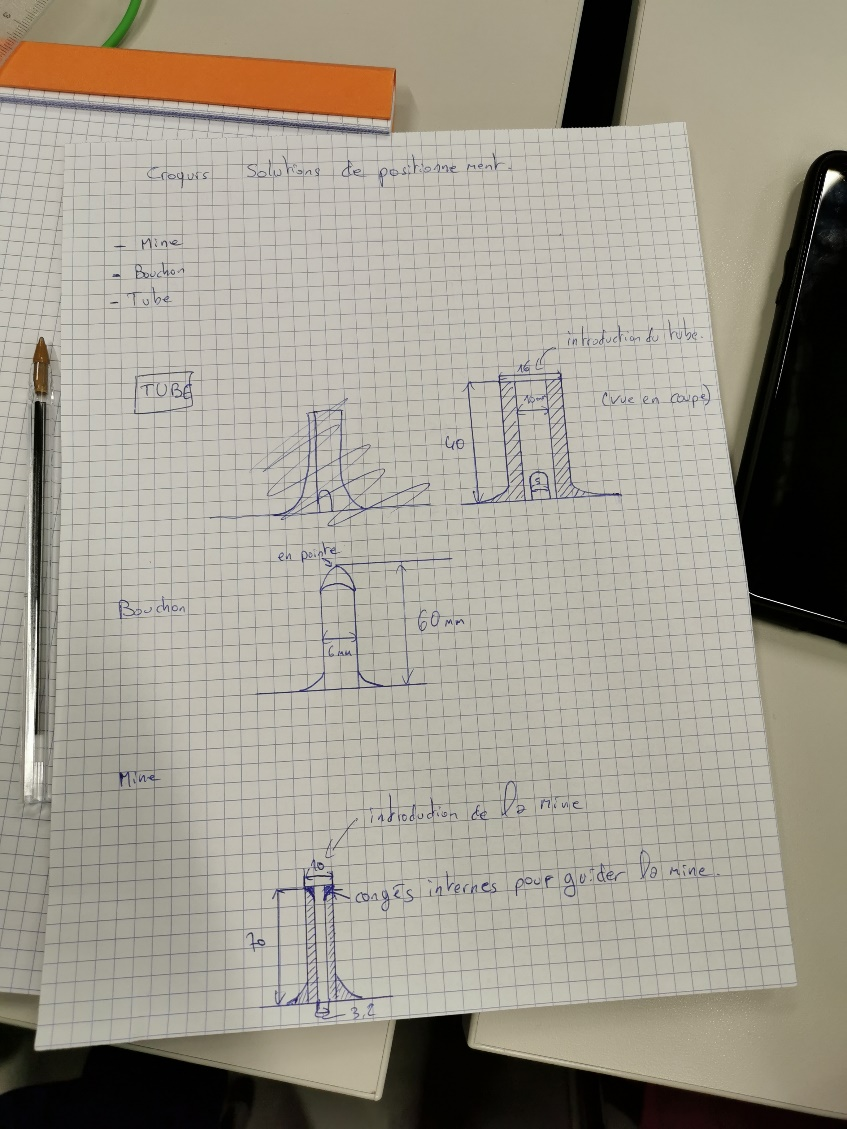 Croquis Solutions de positionnement.
- Mine
- Bouchon
- Tube
introduction du tube.
TUBE
16
(vue en coupe)
40
5
en pointe
Bouchon
60mm
6mm
Mine
introduction de la mine
10
congés internes pour guider la mine.
70
3,2